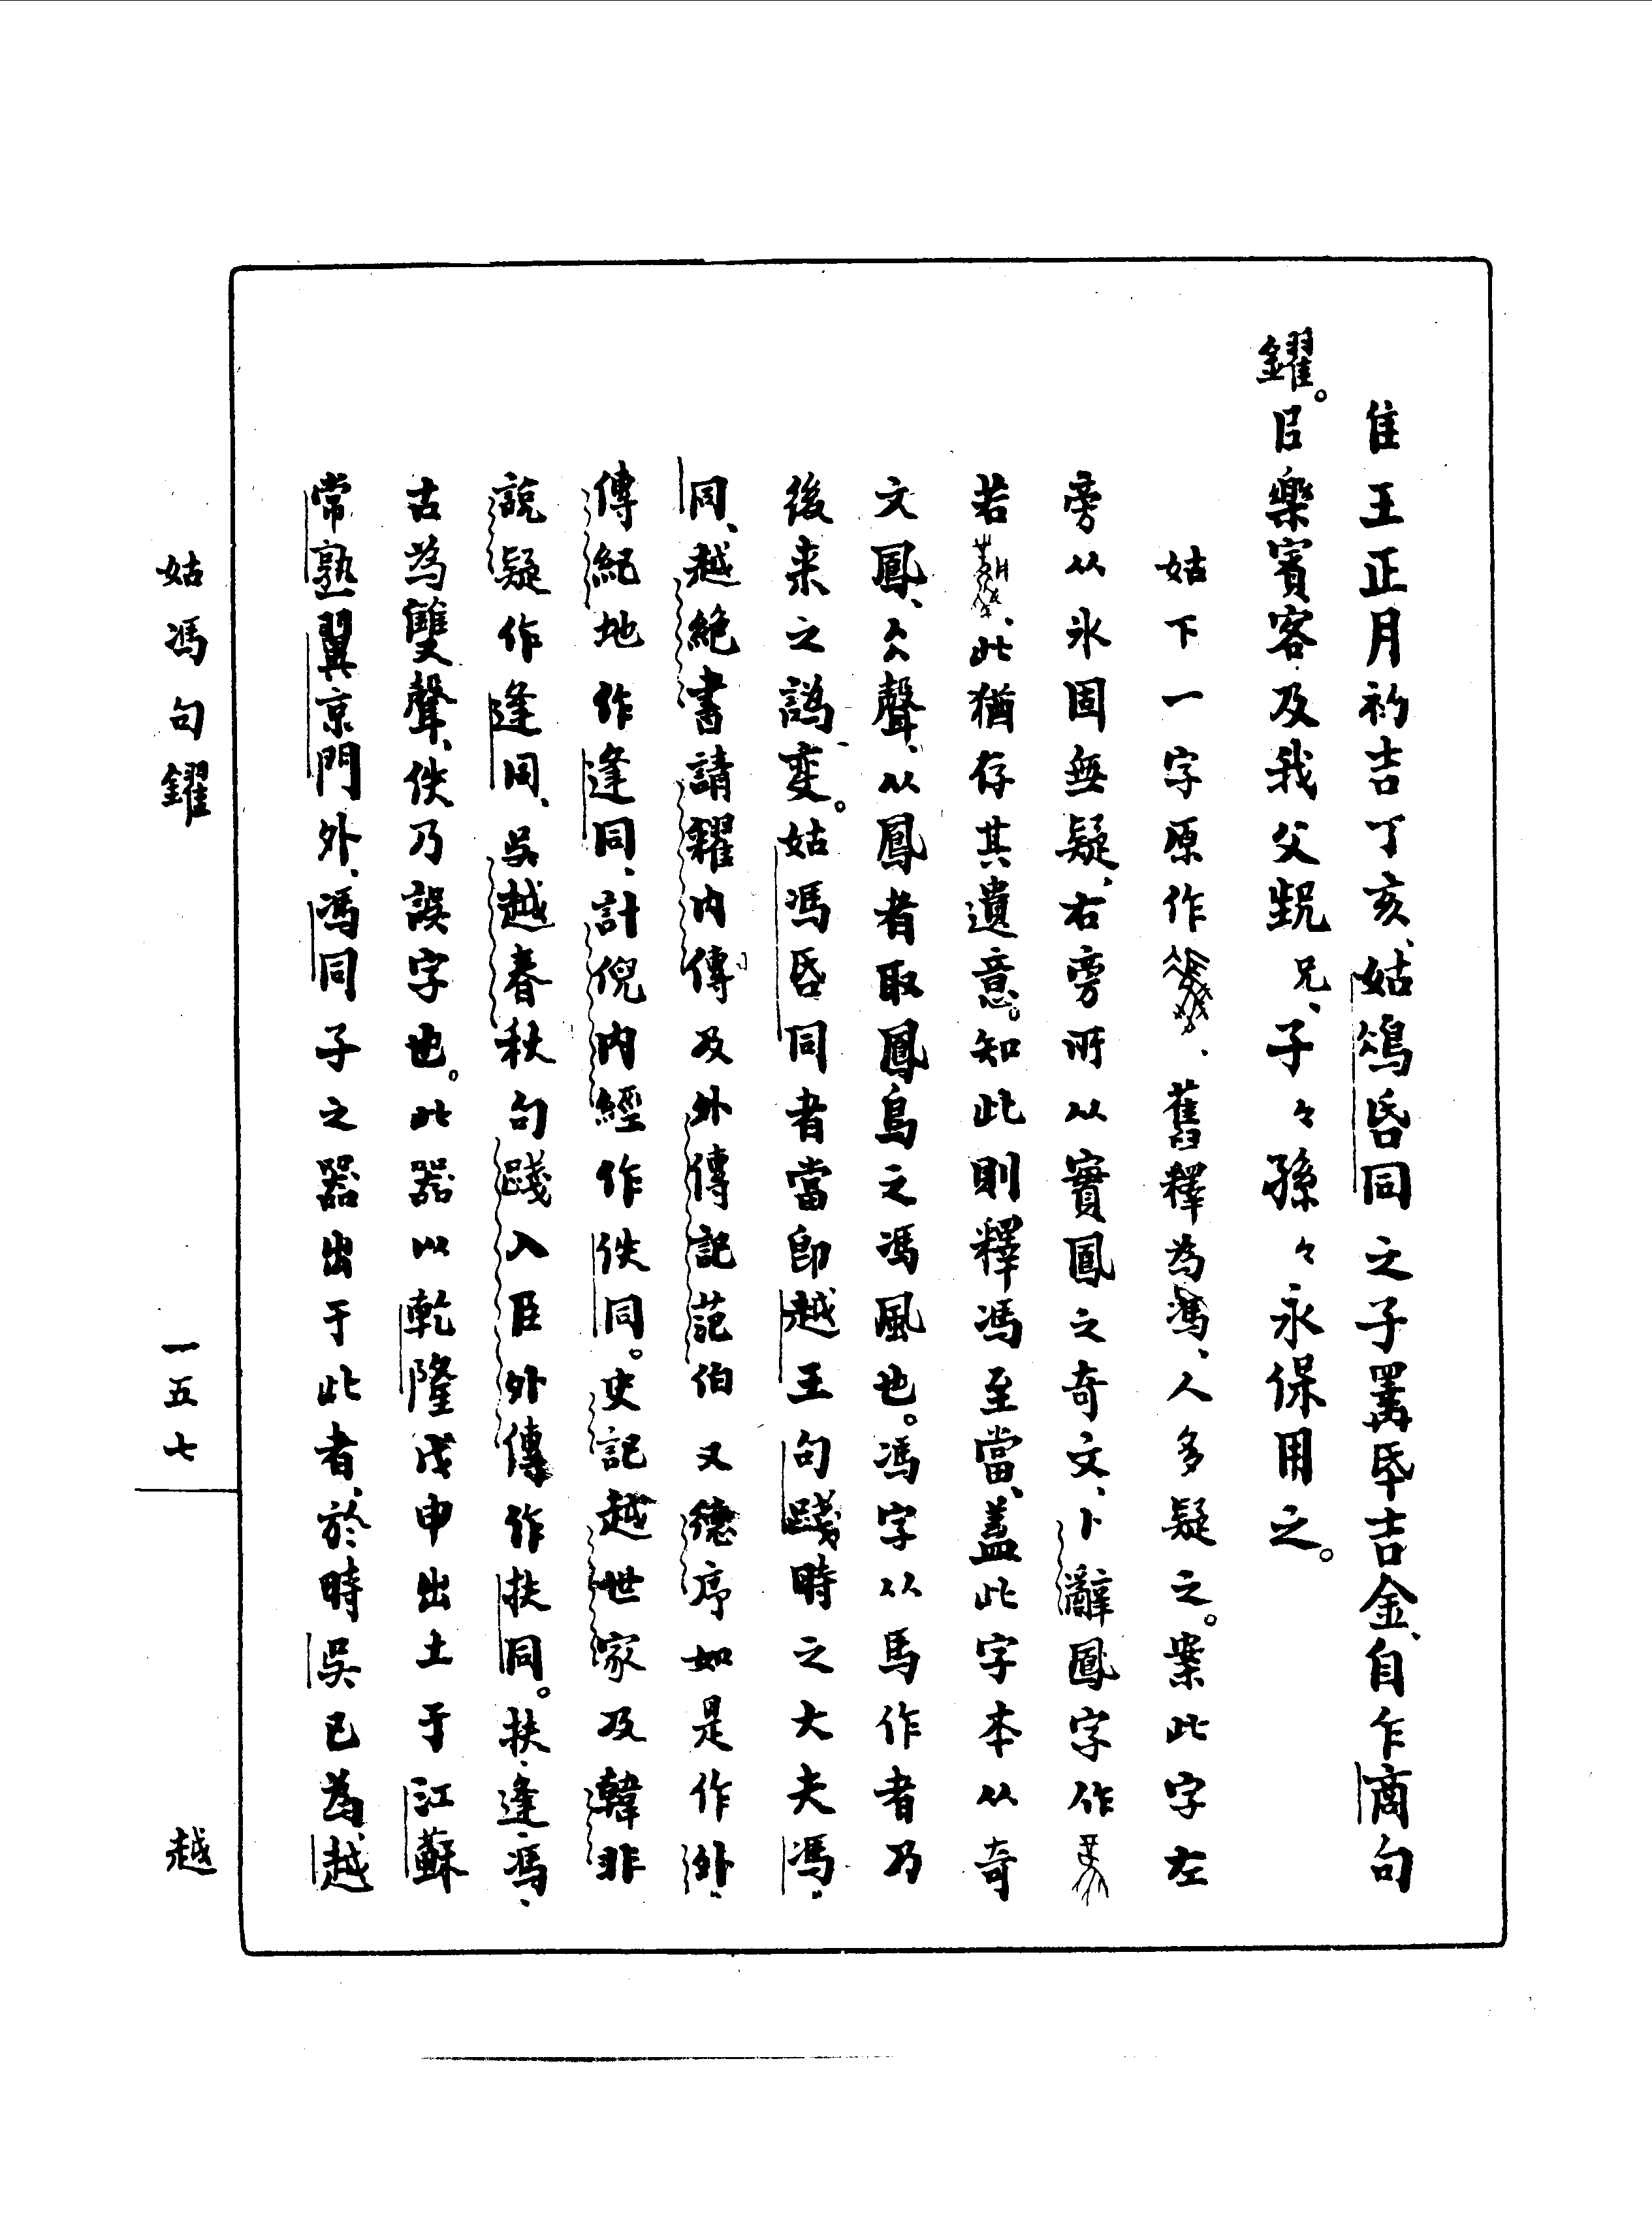 隹王正月初吉丁亥、姑鴔昏同之子睪氒吉金、自乍商句
鑃。㠯樂賓客及我父兄、子々孫々永保用之。
姑下一字原作、舊釋為馮、人多疑之。案此字左
旁从仌固無疑、右旁所从實鳳之奇文、卜辭鳳字作
若、此猶存其遺意。知此則釋馮至當、蓋此字本从奇
文鳳、仌聲、从鳳者取鳳鳥之馮風也。馮字从馬作者乃
後来之譌變。姑馮昏同者當卽越王句踐時之大夫馮
同、越絕書請糴內傳及外傳記范伯又德序如是作外
傳紀地作逢同、計倪內經作佚同。史記越世家及韓非
說疑作逢同、吳越春秋句踐入臣外傳作扶同。扶逢馮、
古為雙聲、佚乃誤字也。此器以乾隆戊申出土于江蘇
常熟翼京門外、馮同子之器出于此者、於時吳已為越
姑馮句鑃
一五七
越